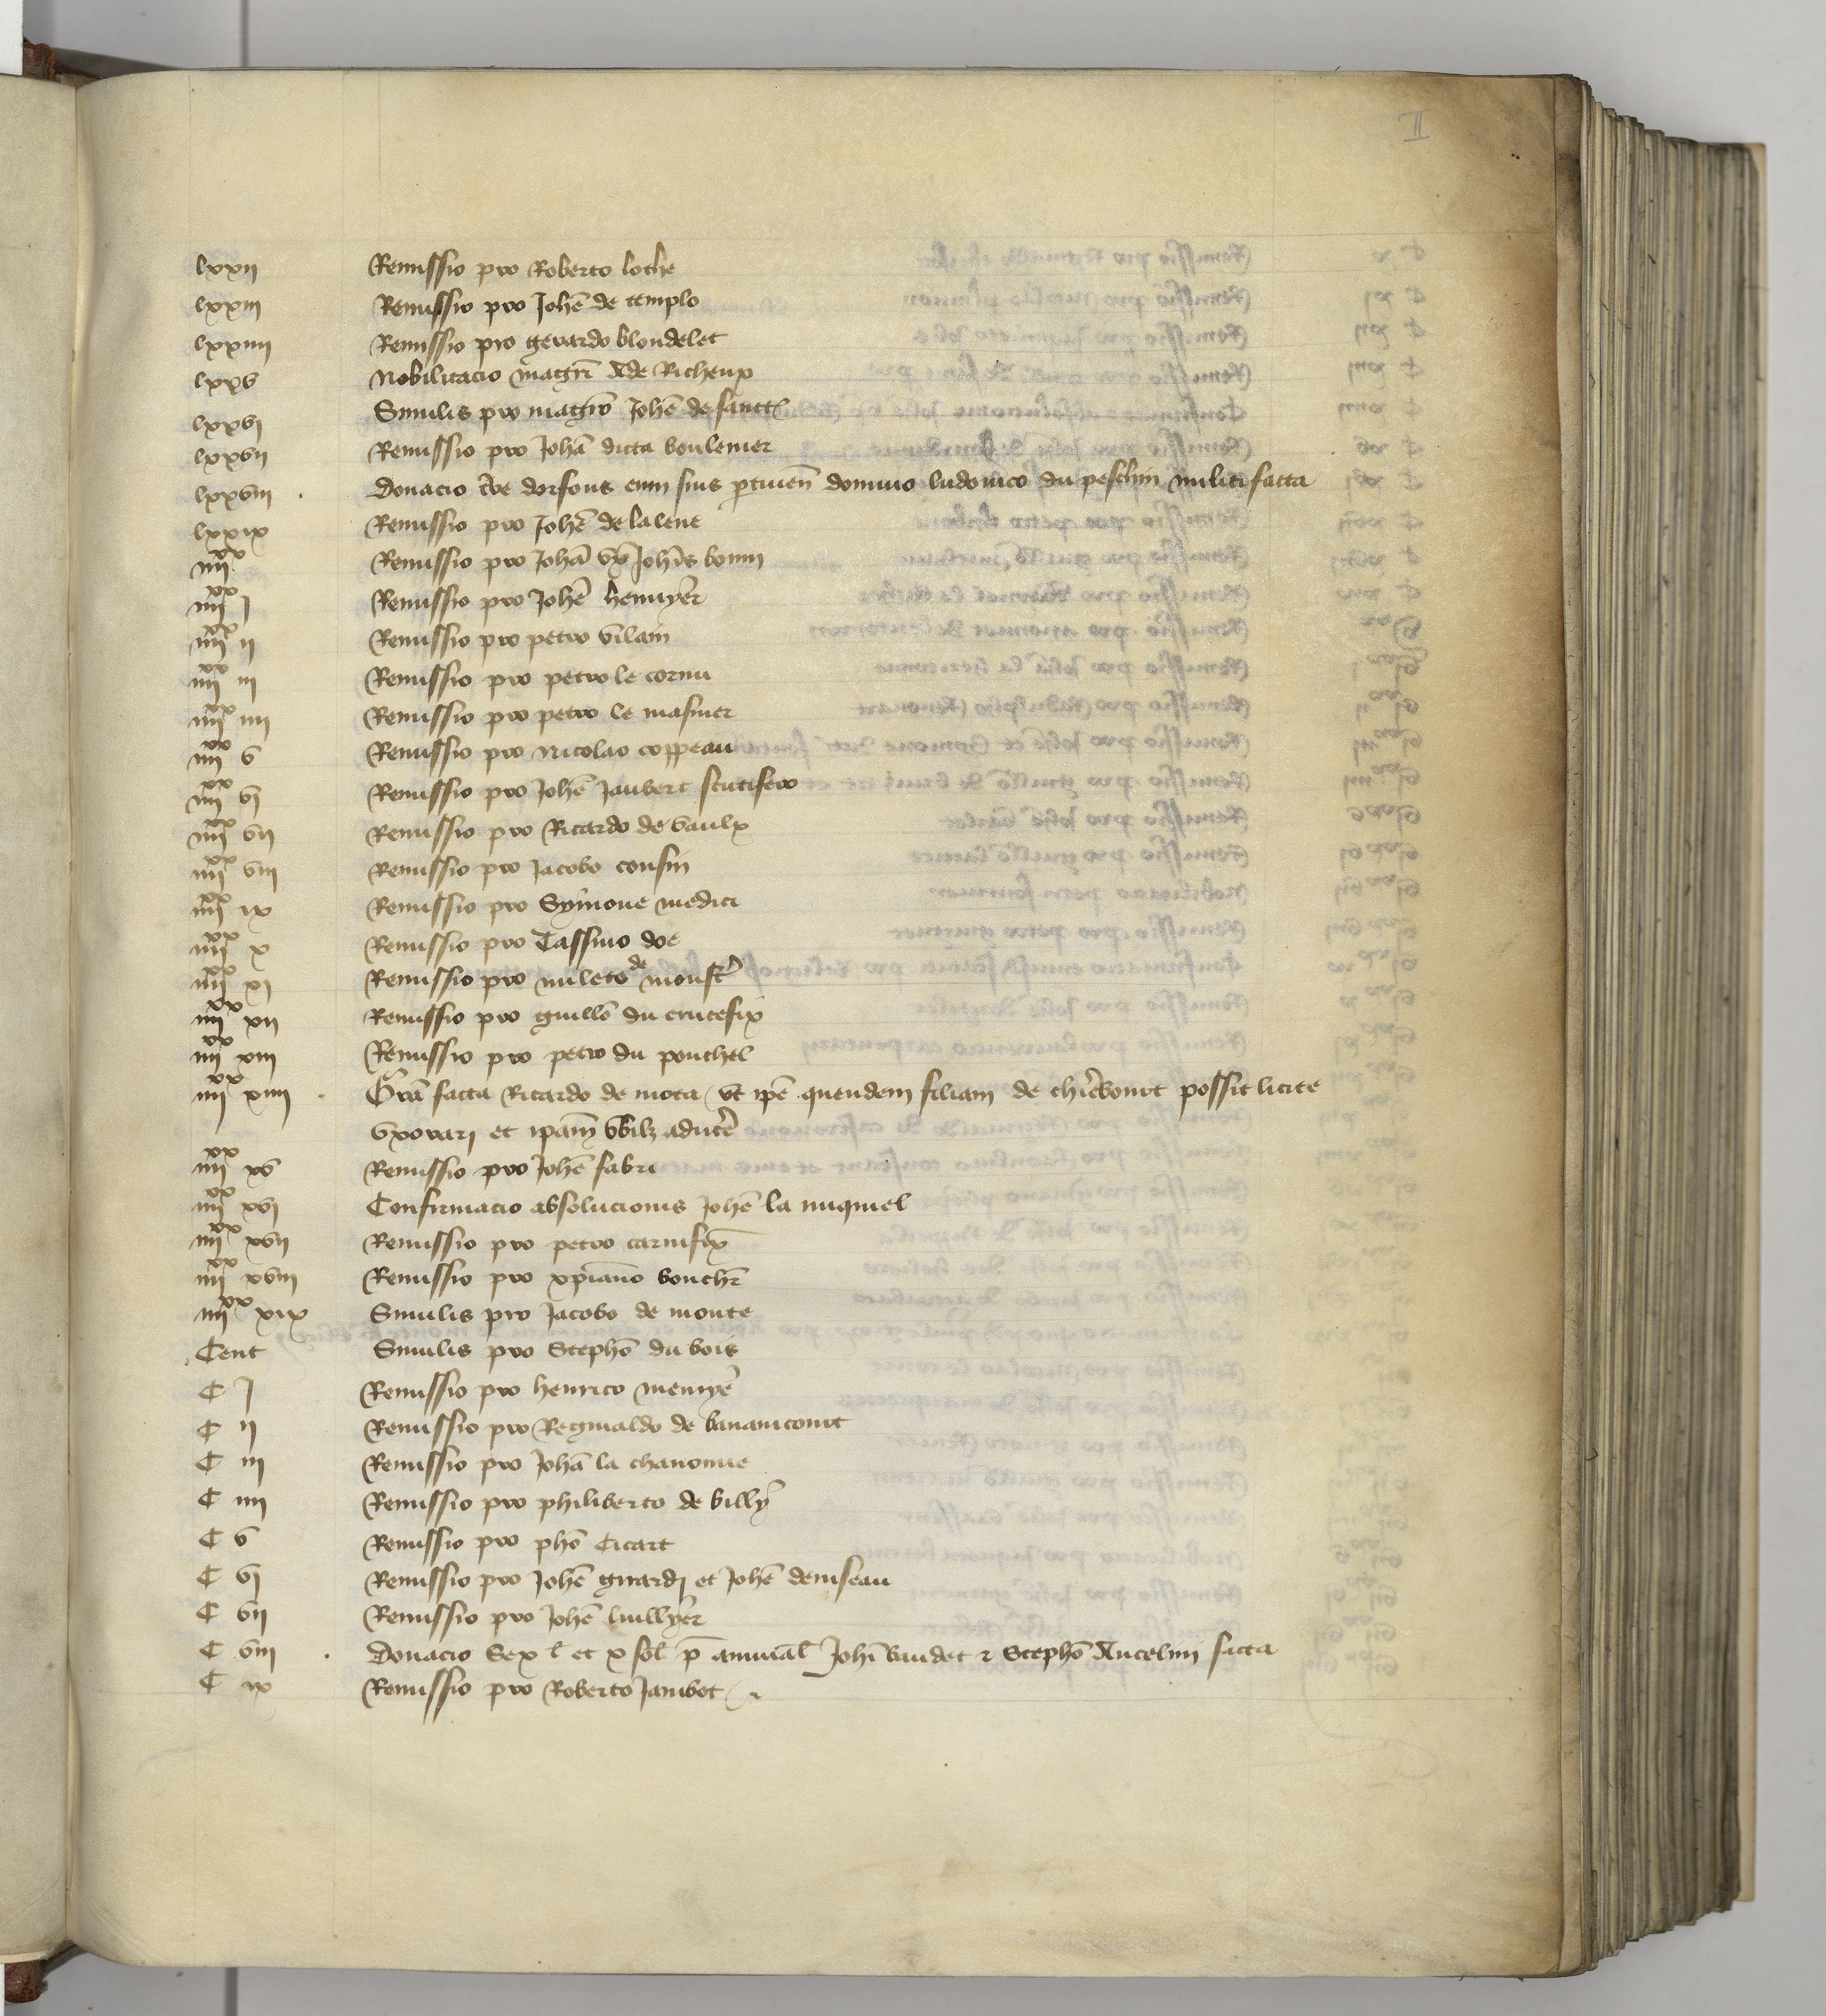 II
lxxii Remissio pro Roberto loche
lxxiii Remissio pro Johē de templo
lxxiiii Remissio pro gerardo blondelet
lxxv Nobilitacio magrī A de Richeux
lxxvi Similis pro magrō Johē de sanct
lxxvii Remissio pro Johā dicta boulenier
lxxviii . Donacio tr̄e dorsons cum suis ptinēn domino ludovico du peschin militi facta
lxxix Remissio pro Johē de lalene
iiii xx Remissio pro Johā vx̄ Johis bonin
iiii xx j Remissio pro Johē hemyer
iiii xx ii Remissio pro petro vilain
iiii xx iii Remissio pro petro le cornu
iiii xx iiii Remissio pro petro le masnier
iiii xx v Remissio pro Nicolao coppeau
iiii xx vj Remissio pro Johē Jaubert scutifero
iiii xx vii Remissio pro Ricardo de vaulx
iiii xx viii Remissio pro Jacobo cousin
iiii xx ix Remissio pro Symone medici
iiii xx x Remissio pro Tassino doe
iiii xx xi Remissio pro mileto de monst
iiii xx xii Remissio pro guillō du crucefix
iiii xx xiii Remissio pro petro du ponchel
iiii xx xiiii . Grā facta Ricardo de mota vt ipē quendem filiam de possit licite
vxorari et ipam̄ adūce
iiii xx xv Remissio pro Johē fabri
iiii xx xvj Confirmacio absolucionis Johē la miquiel
iiii xx xvii Remissio pro petro carnifix
iiii xx xviii Remissio pro xp̄iano bouchē
iiii xx xix Similis pro Jacobo de monte
Cent Similis pro Stephō du bois
C j Remissio pro henrico menyē
C ii Remissio pro Reginaldo de banaincourt
C iii Remissio pro Johā la chanonne
C iiii Remissio pro philiberto de billy
C v Remissio pro phō Cicart
C vj Remissio pro Johē girardj et Johē deniseau
C vii Remissio pro Johē luillyer
C viii . Donacio Sex l et x sol p annual Johi baudet z Stephō Ancelini facta
C ix Remissio pro Roberto Jambot